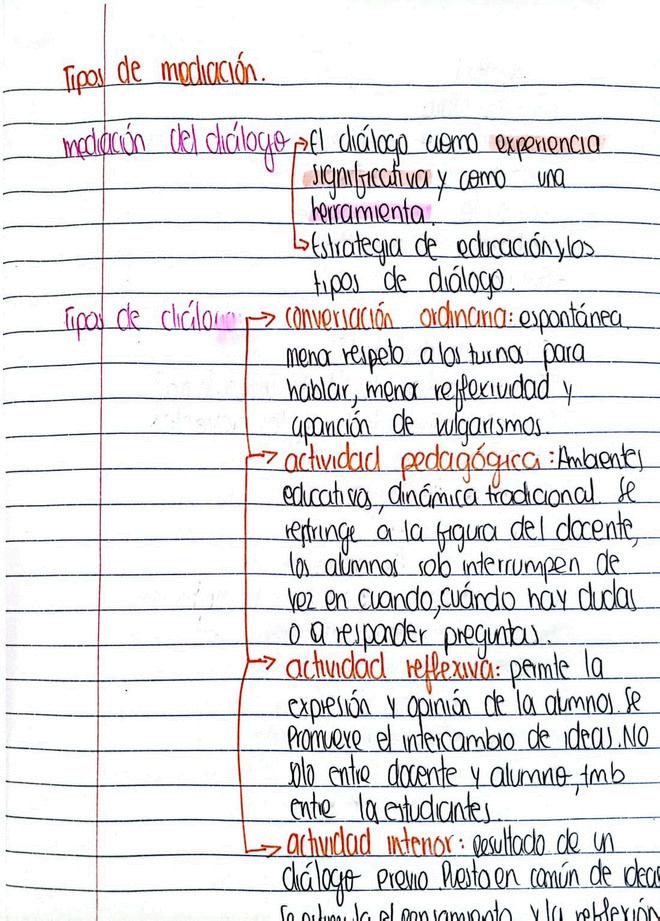 Tipos de mediación.
mediación del diálogo → El diálogo como experiencia
significativa y como una
herramienta.
→ Estrategia de educación y los
tipos de diálogo.
Tipos de diálogo → conversación ordinaria: espontánea,
menor respeto a los turnos para
hablar, menor reflexividad y
aparición de vulgarismos.
→ actividad pedagógica: Ambientes
educativos, dinámica tradicional. Se
restringe a la figura del docente,
los alumnos solo interrumpen de
vez en cuando, cuándo hay dudas
o a responder preguntas.
→ actividad reflexiva: permite la
expresión y opinión de la alumnos. Se
Promueve el intercambio de ideas. No
solo entre docente y alumno, tmb
entre la estudiantes.
→ actividad interior: Resultado de un
diálogo previo Puesta en común de ideas
Se estimula el pensamiento y la reflexión